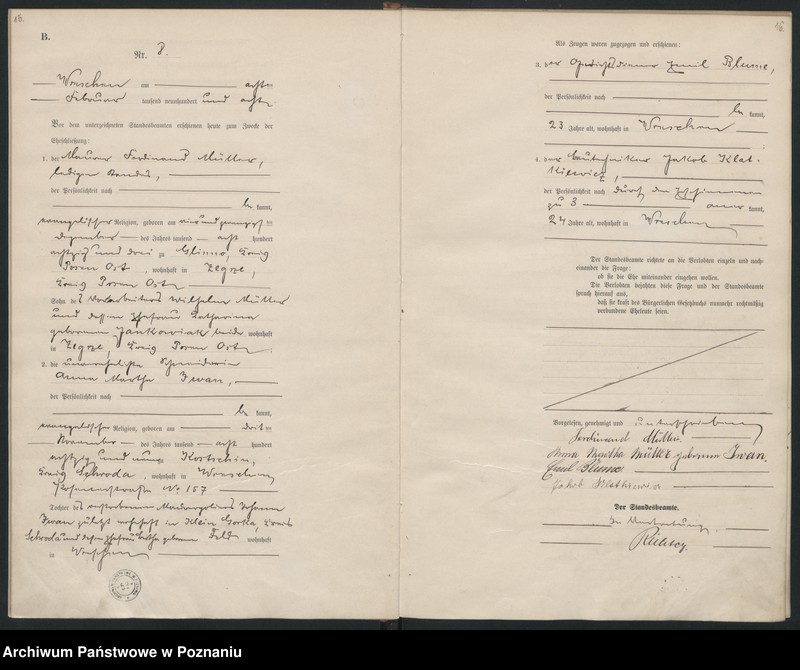 15.
B.
Nr. 8.
Wreschen am achten
Februar tausend neunhundert und acht
Vor dem unterzeichneten Standesbeamten erschienen heute zum Zwecke der
Eheschließung:
1. der Maurer Ferdinand Müller,
ledigen Standes,
der Persönlichkeit nach
be kannt,
evangelischer Religion, geboren am vierundzwanzigsten
Dezember des Jahres tausend acht hundert
achtzig und drei zu Glinno, Kreis
Posen Ost, wohnhaft in Zegrze,
Kreis Posen Ost
Sohn des Vorarbeiters Wilhelm Müller
und dessen Ehefrau Katharina
geborenen Jankowiak beide wohnhaft
in Zegrze, Kreis Posen Ost;
2. die unverehelichte Schneiderin
Anna Martha Iwan,
der Persönlichkeit nach
be kannt,
evangelischer Religion, geboren am dritten
November des Jahres tausend acht hundert
achtzig und neun Kostschin,
Kreis Schroda, wohnhaft in Wreschen
Posenerstraße No 157
Tochter des verstorbenen Johann
Iwan zuletzt wohnhaft in Klein Gorka, Kreis
Schroda und dessen Ehefrau geborenen wohnhaft
in Wreschen
16.
Als Zeugen waren zugezogen und erschienen:
3. der Gerichtsdiener Emil Blume,
der Persönlichkeit nach
be kannt,
23 Jahre alt, wohnhaft in Wreschen
4. der Bautechniker Jakob Klat-
kiewicz,
der Persönlichkeit nach durch den
zu 3 aner kannt,
24 Jahre alt, wohnhaft in Wreschen
Der Standesbeamte richtete an die Verlobten einzeln und nach-
einander die Frage:
ob sie die Ehe miteinander eingehen wollen.
Die Verlobten bejahten diese Frage und der Standesbeamte
sprach hierauf aus,
daß sie kraft des Bürgerlichen Gesetzbuchs nunmehr rechtmäßig
verbundene Eheleute seien.
Vorgelesen, genehmigt und unterschrieben
Ferdinand Müller.
Anna Martha Müller geborene Iwan.
Emil Blume
Jakob
Der Standesbeamte.
In Vertretung.
Archiwum Państwowe w Poznaniu